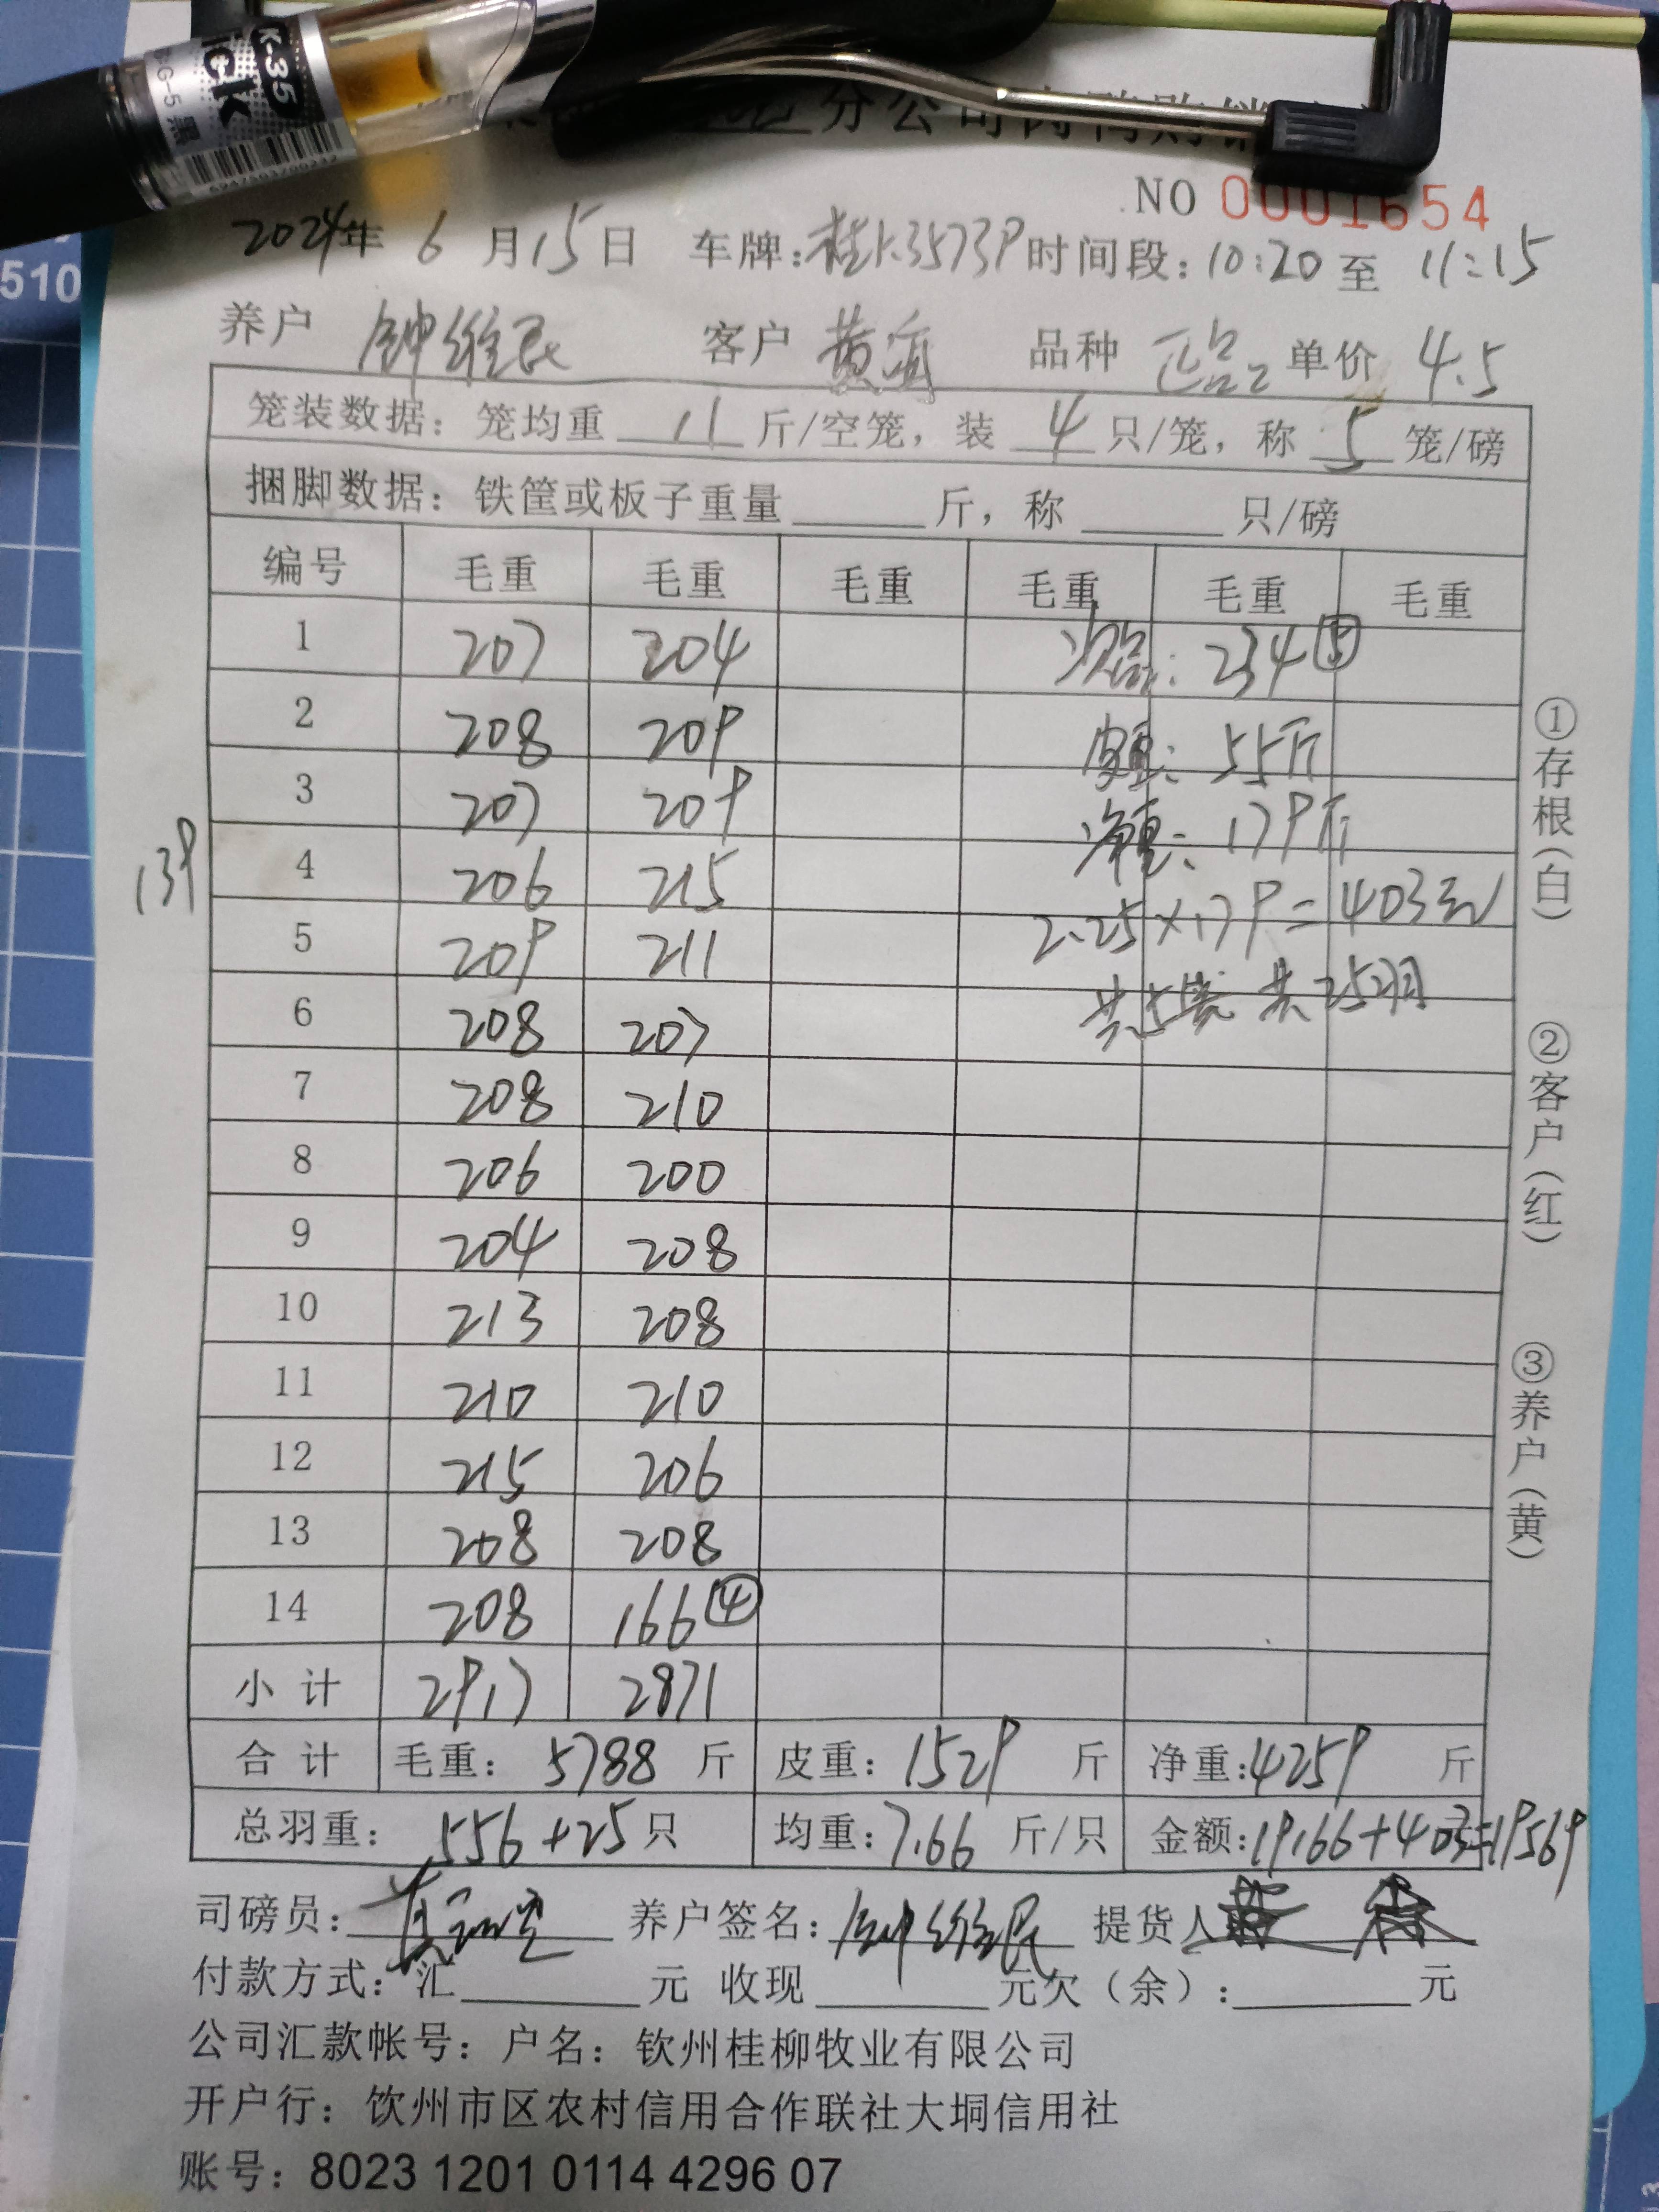 K-35
G-5 黑
6947503700232
510
分公司肉鸭购销
NO 0001654
2024年 6 月15日 车牌:桂K3573P时间段:10:20 至 11:15
养户 钟维民 客户 黄 品种 正品 单价 4.5
笼装数据：笼均重 11 斤/空笼，装 4 只/笼，称 5 笼/磅
捆脚数据：铁筐或板子重量 斤，称 只/磅
编号 毛重 毛重 毛重 毛重 毛重 毛重
1 207 204 次品：234⑤
2 208 209 皮重：55斤
3 207 209 净重：179斤
139
4 206 215 2.25×179=403元
5 209 211 共5笼 共25只
6 208 207
7 208 210
8 206 200
9 204 208
10 213 208
11 210 210
12 215 206
13 208 208
14 208 166④
小 计 2917 2871
合 计 毛重：5788 斤 皮重：1529 斤 净重:4259 斤
总羽重：556+25只 均重:7.66 斤/只 金额:19166+403=19569
①存根（白）
②客户（红）
③养户（黄）
司磅员: 养户签名：钟维民 提货人
付款方式：汇 元 收现 元欠（余）: 元
公司汇款帐号：户名：钦州桂柳牧业有限公司
开户行：钦州市区农村信用合作联社大垌信用社
账号：8023 1201 0114 4296 07